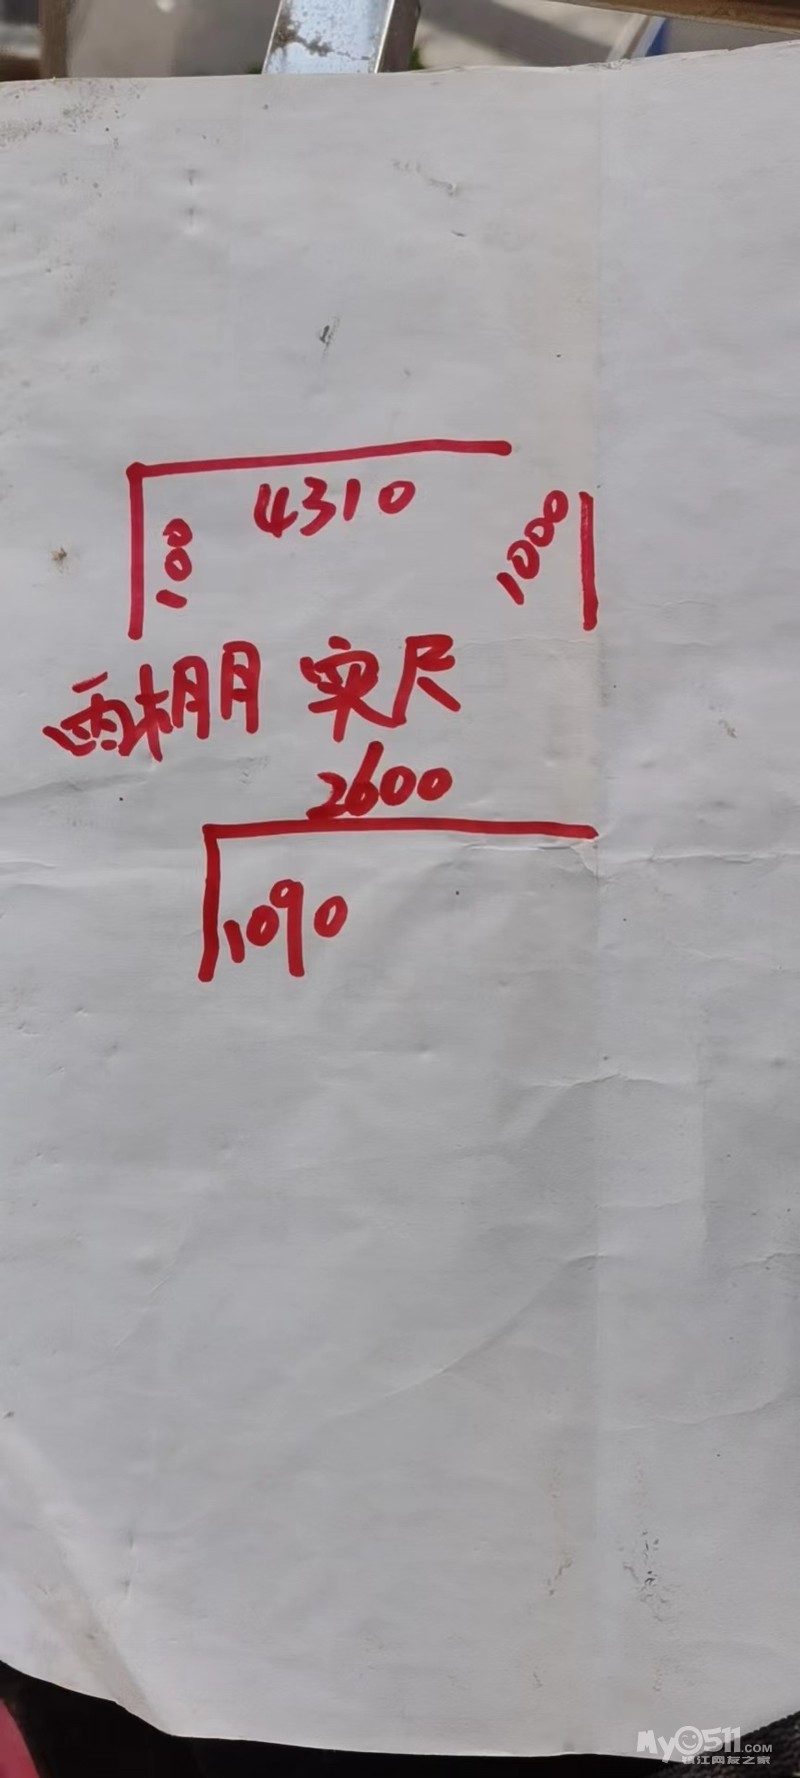 4310
100
1000
雨棚 实尺
2600
1090
My0511.COM
镇江网友之家